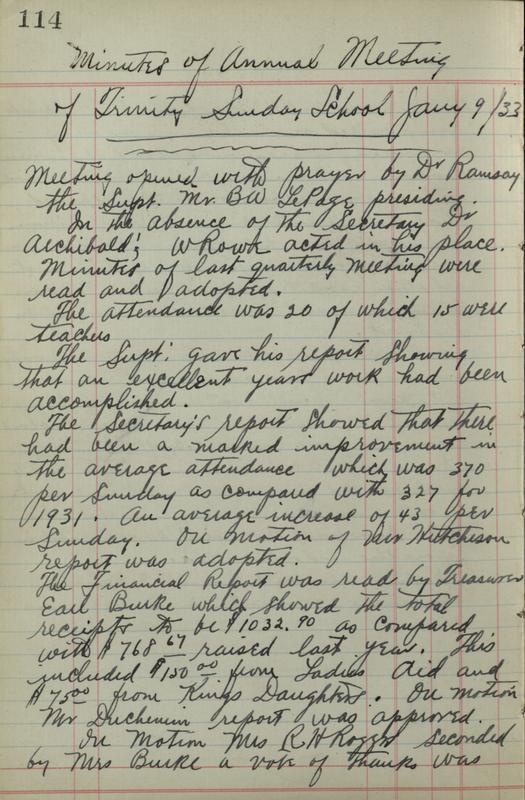 114
Minutes of Annual Meeting
of Trinity Sunday School Jany 9/33
Meeting opened with prayer by Dr Ramsay
the Supt. Mr. BW LePage presiding.
In the absence of the Secretary Dr
Archibald, W Rowk acted in his place.
Minutes of last quarterly Meeting were
read and adopted.
The attendance was 20 of which 15 were
teachers
The Supt. gave his report showing
that an excellent years work had been
accomplished.
The Secretary's report showed that there
had been a marked improvement in
the average attendance which was 370
per Sunday as compared with 327 for
1931. An average increase of 43 per
Sunday. On motion of Mr Hutcheson
report was adopted.
The Financial Report was read by Treasurer
Earl Burke which showed the total
receipts to be $1032.90 as compared
with $768 67 raised last year. This
included $150 00 from Ladies Aid and
$75 00 from Kings Daughters. On motion
Mr Duchemin report was approved.
On Motion Mrs R H Rogers seconded
by Mrs Burke a vote of thanks was